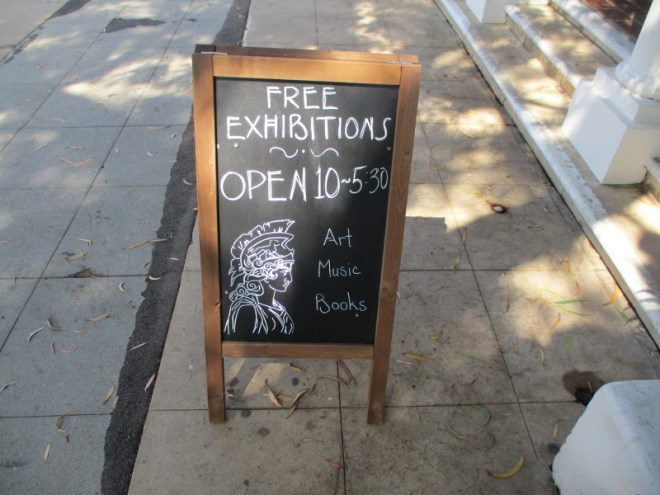 FREE
EXHIBITIONS
OPEN 10~5:30
Art
Music
Books